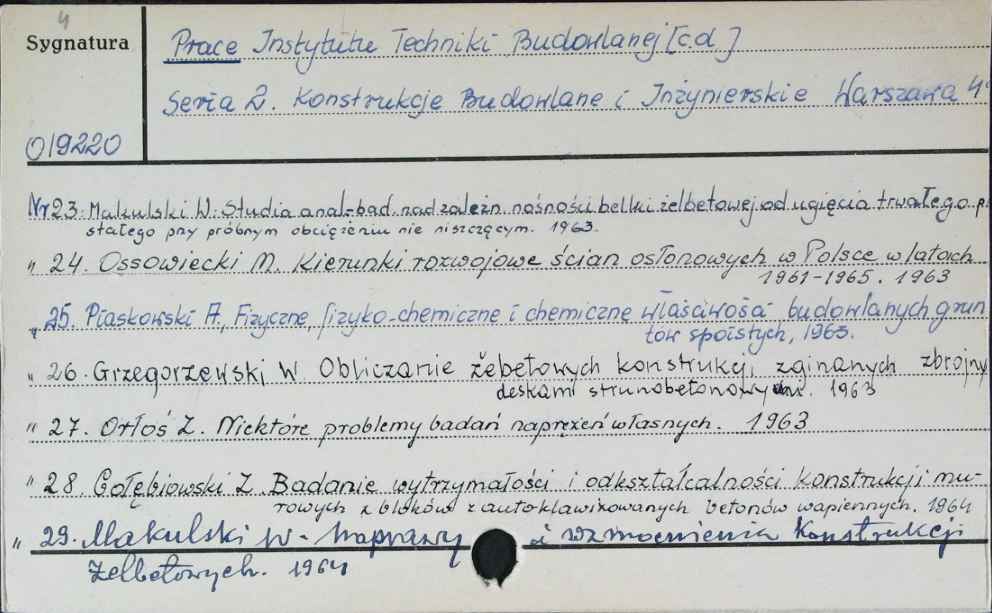 4
Sygnatura
Prace Instytutu Techniki Budowlanej [c.d.]
Seria 2. Konstrukcje Budowlane i Inżynierskie Warszawa 4°
019220
Nr 23. Makulski W. Studia anal-bad. nad zależn. nośności belki żelbetowej od ugięcia trwałego p.
stałego przy próbnym obciążeniu nie niszczącym. 1963.
" 24. Ossowiecki M. Kierunki rozwojowe ścian osłonowych w Polsce w latach
1961-1965. 1963
" 25. Piaskowski A., Fizyczne, fizyko-chemiczne i chemiczne właściwości budowlanych grun
tów spoistych, 1963.
" 26. Grzegorzewski W. Obliczanie żebetowych konstrukcji zginanych zbrojny
deskami strunobetonowymi. 1963
" 27. Orłoś Z. Niektóre problemy badań naprężeń własnych. 1963
" 28. Gołębiowski Z. Badanie wytrzymałości i odkształcalności konstrukcji mu-
rowych z bloków z autoklawizowanych betonów wapiennych. 1964
" 29. Makulski W. - Naprawy i wzmocnienia konstrukcji
żelbetowych. 1964